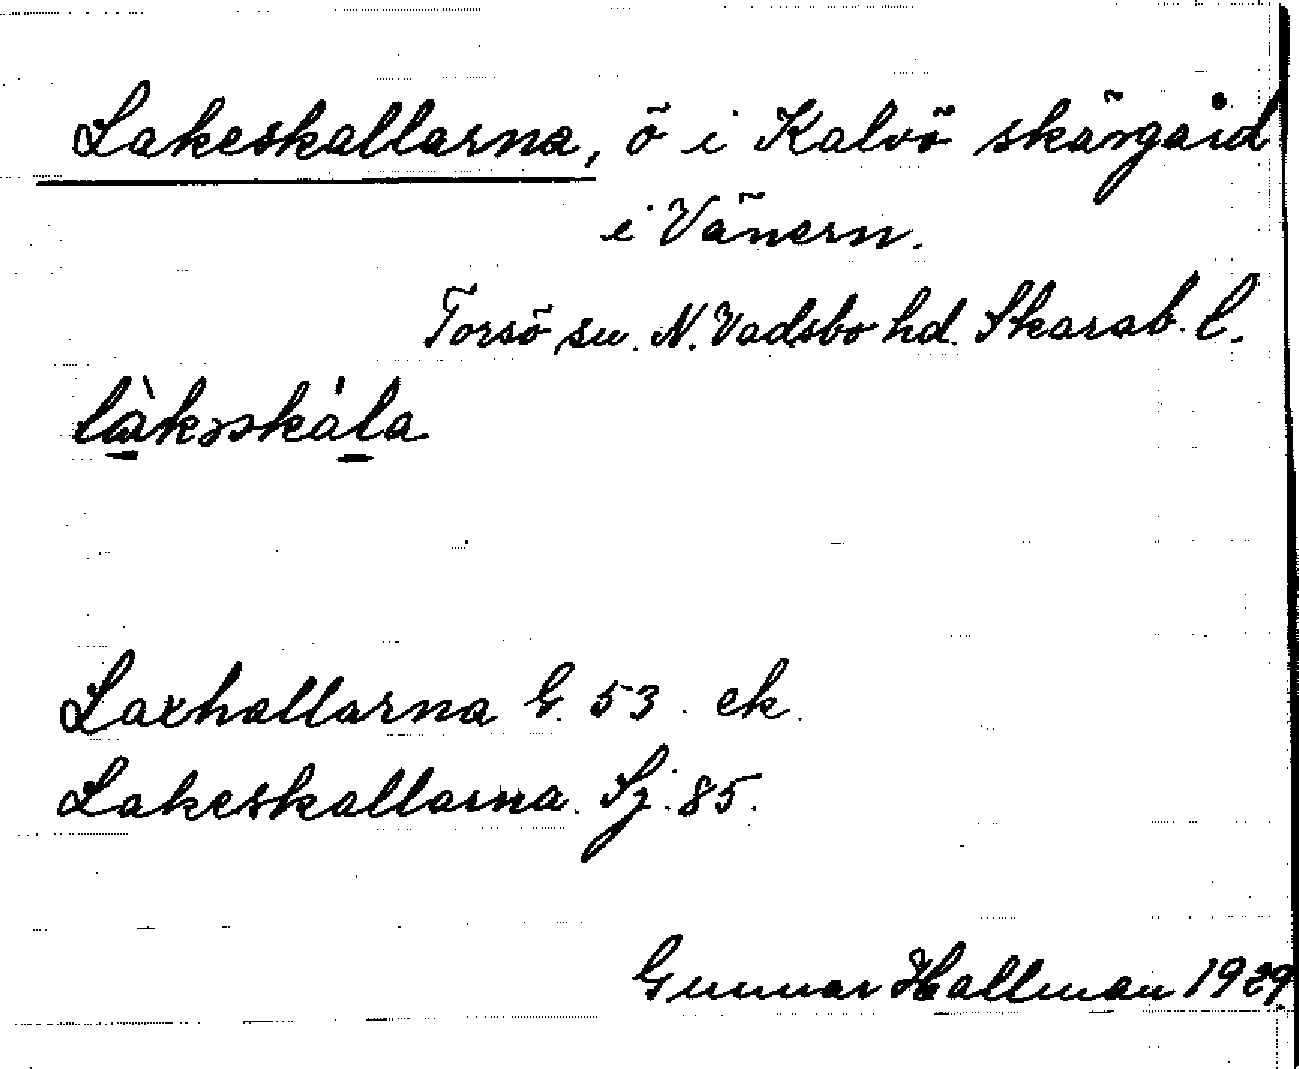 Lakeskallarna, ö i Kalvö skärgård
i Vänern.
Torsö sn. N. Vadsbo hd. Skarab. l.
là̱kəskáḻa
Laxhallarna G. 53. ek.
Lakeskallarna. Sj. 85.
Gunnar Hallman 1929.